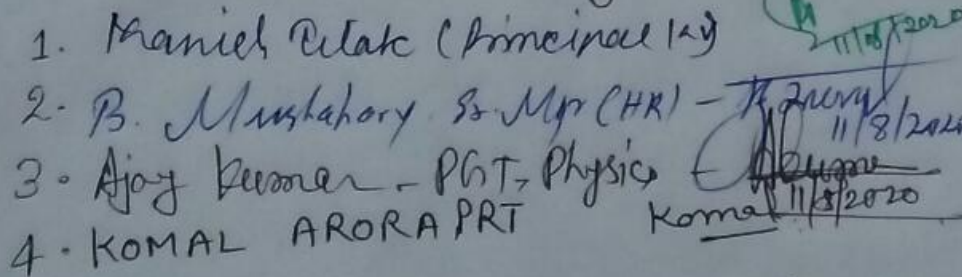 1. Manish Tilak (Principal KV) 11/8/2020
2. B. Mushahary Sr. Mgr (HR) - 11/8/2020
3. Ajay Kumar - PGT, Physics AKumar 11/8/2020
4. KOMAL ARORA PRT Komal